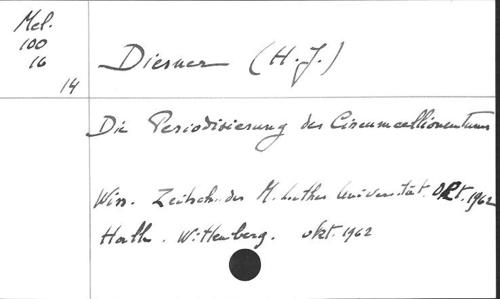 Mel.
100
16
14
Diesner (H. J.)
Die Periodisierung des Circumcellionentums
Wiss. Zeitsch. der M. Luther Universität. OKt. 1962
Halle. Wittenberg. okt. 1962